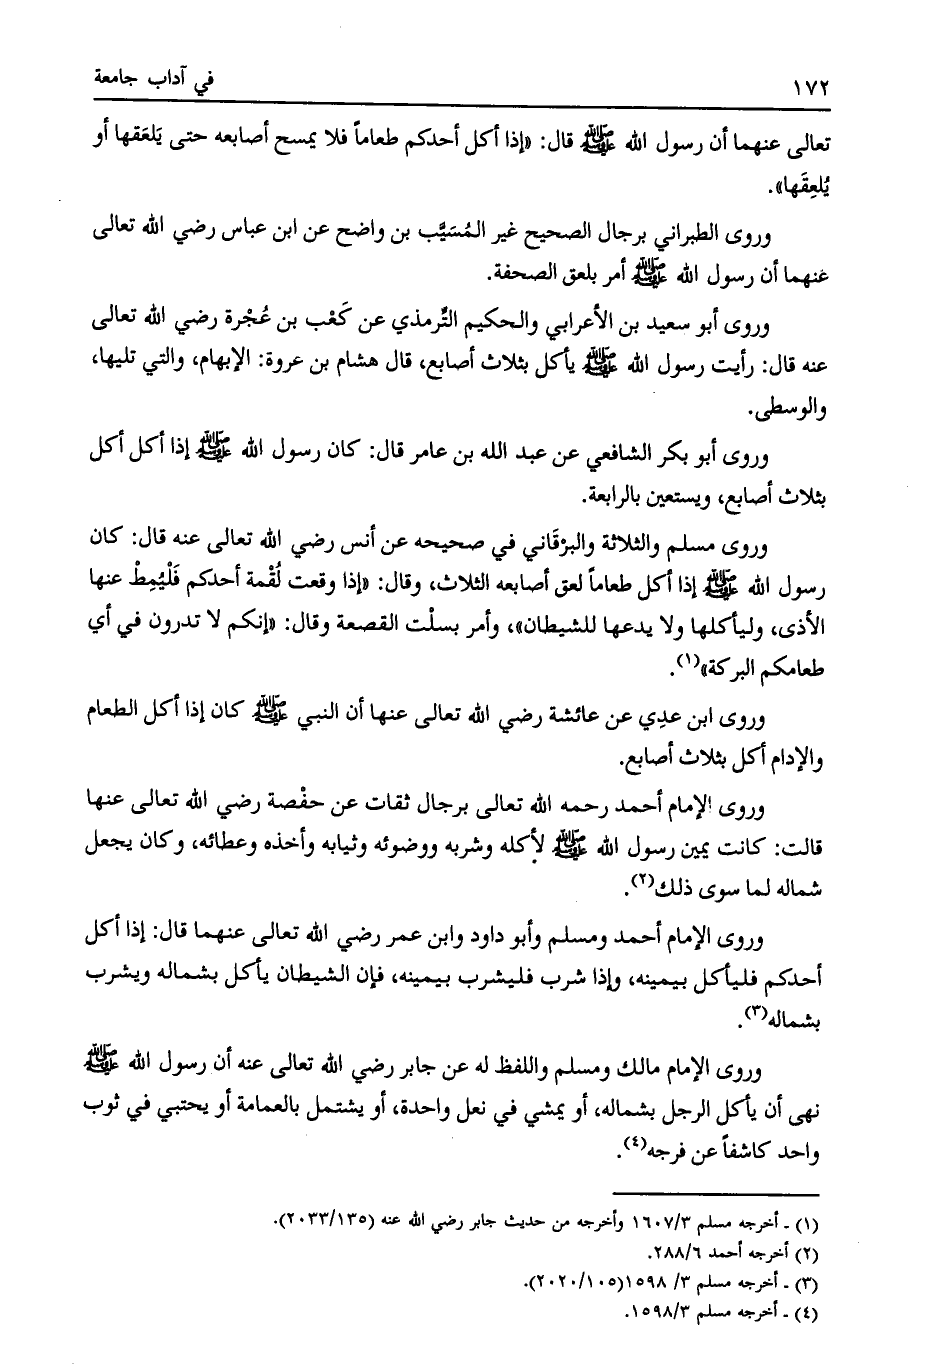 ١٧٢ في آداب جامعة
تعالى عنهما أن رسول الله ﷺ قال: «إذا أكل أحدكم طعاماً فلا يمسح أصابعه حتى يَلعَقها أو
يُلعِقَها».
وروى الطبراني برجال الصحيح غير المُسَيَّب بن واضح عن ابن عباس رضي الله تعالى
عنهما أن رسول الله ﷺ أمر بلعق الصحفة.
وروى أبو سعيد بن الأعرابي والحكيم التَّرمذي عن كَعْب بن عُجْرة رضي الله تعالى
عنه قال: رأيت رسول الله ﷺ يأكل بثلاث أصابع، قال هشام بن عروة: الإبهام، والتي تليها،
والوسطى.
وروى أبو بكر الشافعي عن عبد الله بن عامر قال: كان رسول الله ﷺ إذا أكل أكل
بثلاث أصابع، ويستعين بالرابعة.
وروى مسلم والثلاثة والبرْقَاني في صحيحه عن أنس رضي الله تعالى عنه قال: كان
رسول الله ﷺ إذا أكل طعاماً لعق أصابعه الثلاث، وقال: «إذا وقعت لُقْمة أحدكم فَلْيُمِطْ عنها
الأذى، وليأكلها ولا يدعها للشيطان»، وأمر بسلْت القصعة وقال: «إنكم لا تدرون في أي
طعامكم البركة»(١).
وروى ابن عدِي عن عائشة رضي الله تعالى عنها أن النبي ﷺ كان إذا أكل الطعام
والإدام أكل بثلاث أصابع.
وروى الإمام أحمد رحمه الله تعالى برجال ثقات عن حفْصة رضي الله تعالى عنها
قالت: كانت يمين رسول الله ﷺ لأكله وشربه ووضوئه وثيابه وأخذه وعطائه، وكان يجعل
شماله لما سوى ذلك(٢).
وروى الإمام أحمد ومسلم وأبو داود وابن عمر رضي الله تعالى عنهما قال: إذا أكل
أحدكم فليأكل بيمينه، وإذا شرب فليشرب بيمينه، فإن الشيطان يأكل بشماله ويشرب
بشماله(٣).
وروى الإمام مالك ومسلم واللفظ له عن جابر رضي الله تعالى عنه أن رسول الله ﷺ
نهى أن يأكل الرجل بشماله، أو يمشي في نعل واحدة، أو يشتمل بالعمامة أو يحتبي في ثوب
واحد كاشفاً عن فرجه(٤).
(١) - أخرجه مسلم ١٦٠٧/٣ وأخرجه من حديث جابر رضي الله عنه (٢٠٣٣/١٣٥).
(٢) أخرجه أحمد ٢٨٨/٦.
(٣) - أخرجه مسلم ٣/ ١٥٩٨(٢٠٢٠/١٠٥).
(٤) - أخرجه مسلم ١٥٩٨/٣.